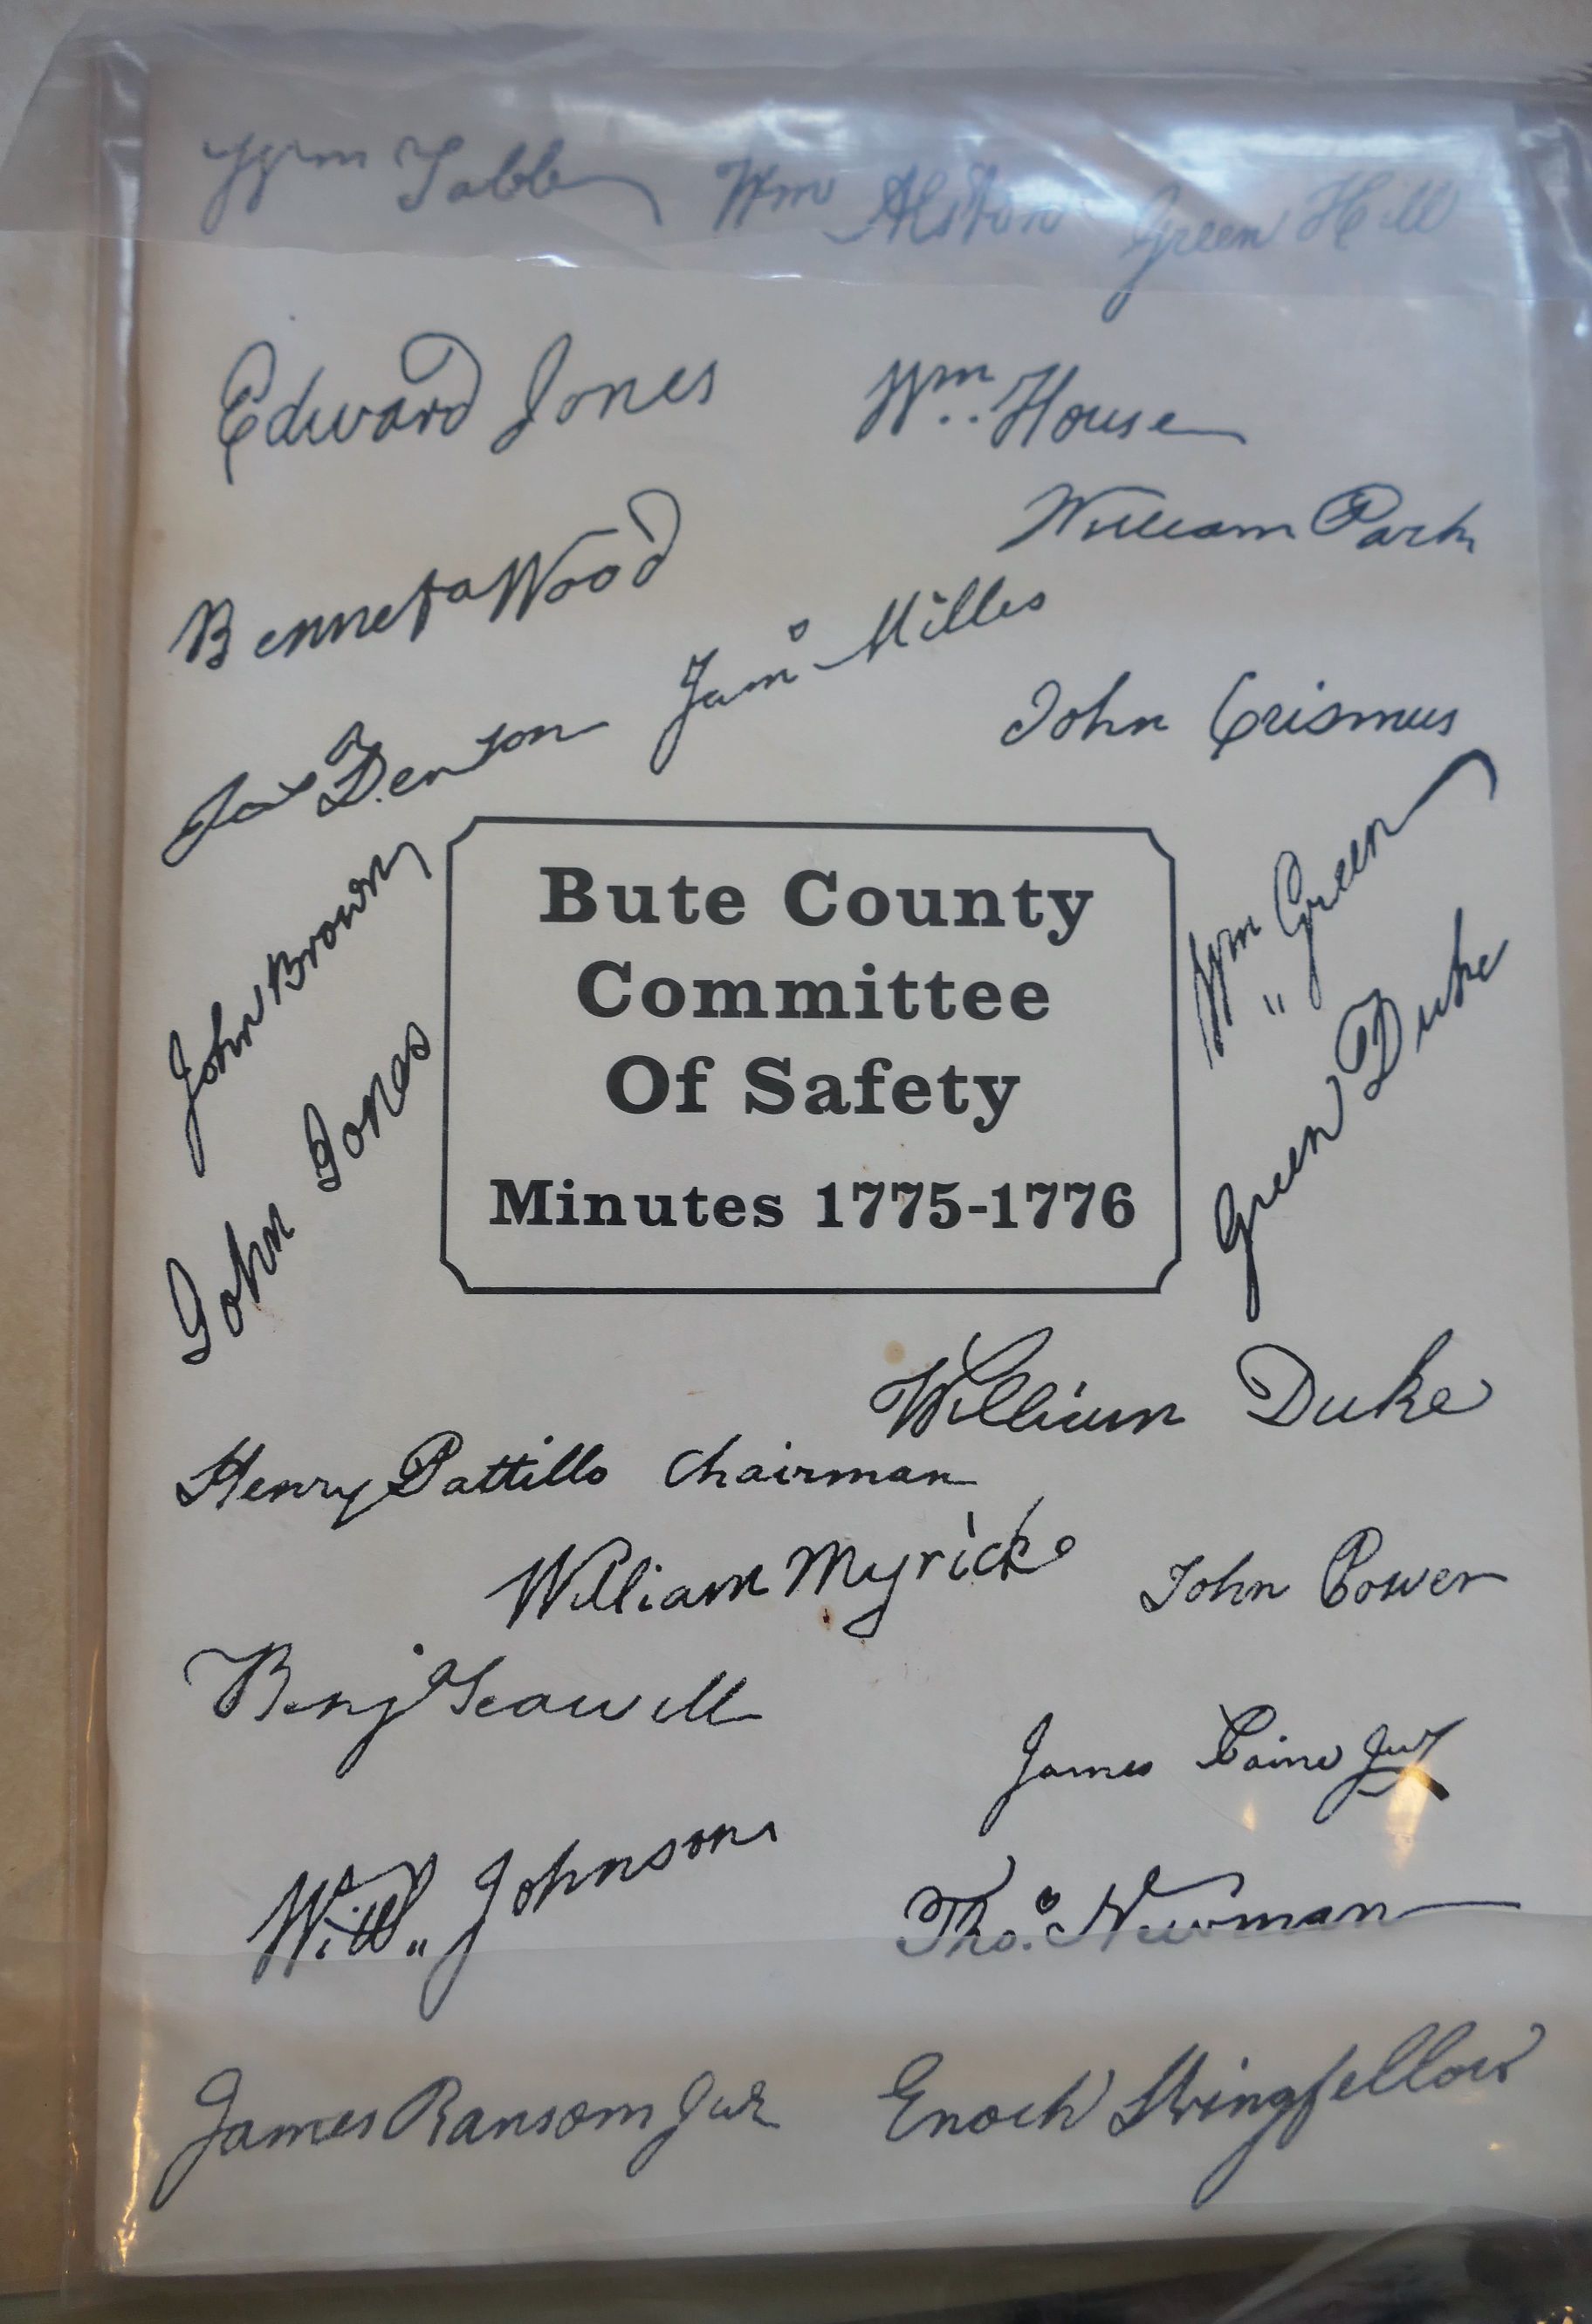 Wm Tabb Wm Alston Green Hill
Edward Jones Wm. House
William Park
Bennet Wood
Jam.o Milles
John Crismus
Jas Denton
Wm Green
John Brown
Green Duke
John Jones
Bute County
Committee
Of Safety
Minutes 1775-1776
William Duke
Henry Pattillo Chairman
William Myrick
John Power
Benj Seawell
James Paine Jur
Will Johnson
Tho.s Newman
James Ransom Jur Enoch Stringfellow